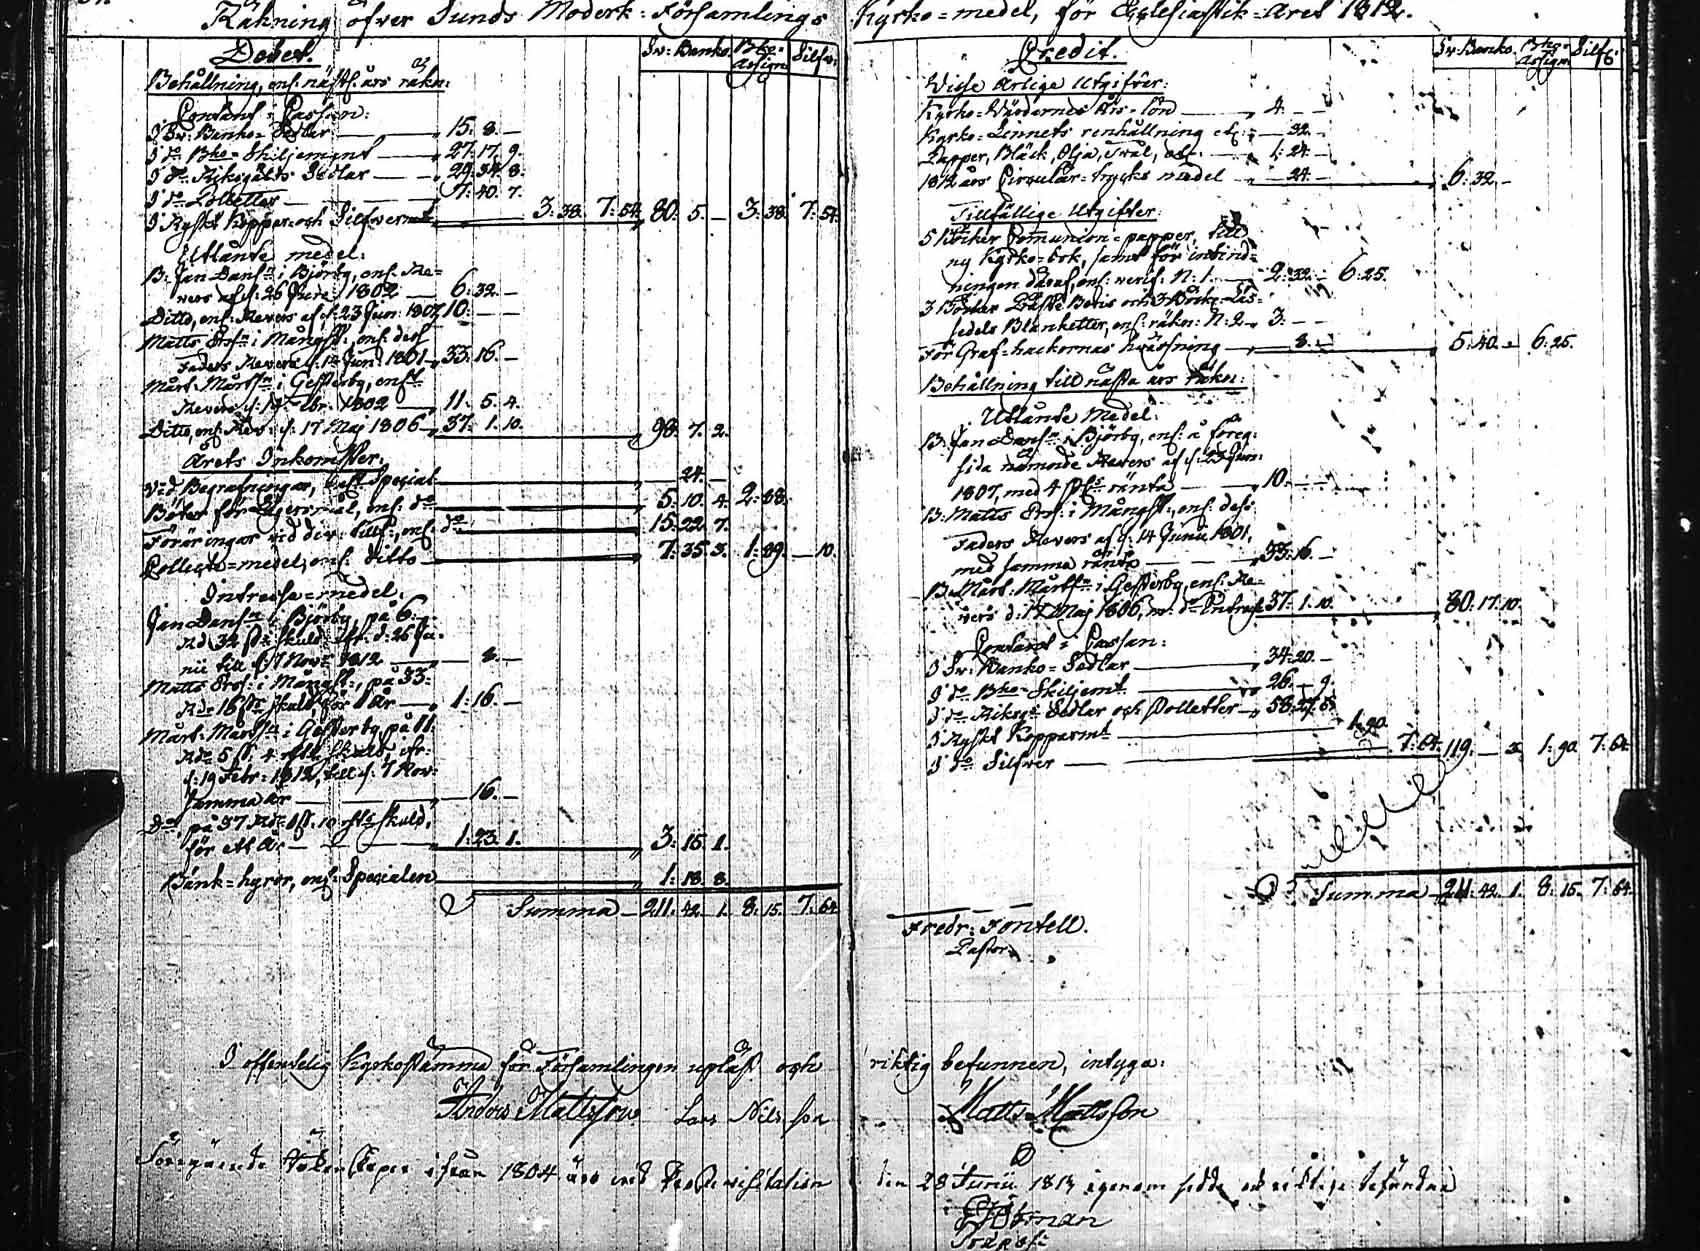 Räkning öfver Sunds Moderk: Församlings Kyrko=medel, för Ecclesiastik=Året 1812.
Debet.
Sv: Banko. Bko= Assign: Silfv:
Behållning, enl: nästl: års räkn:
Contant i Cassan:
I Sv: Banko=Sedlar 15. 8. –
I do Bko Skiljemynt 27. 17. 9.
I do Riksgälds Sedlar 29. 34. 8.
I do Polletter 7. 40. 7.
I Ryskt Koppar- och Silfvermt 3: 38. 7: 54. 80. 5. – 3: 38. 7: 54.
Utlånte medel:
B: Jan Danss: i Björby, enl: Re=
vers af d: 26 Junii 1802 6: 32. –
Ditto, enl: Revers af d: 23 Jun: 1807 10: – –
Matts Erss: i Mångst:, enl: dess
Faders Revers d: 14 Juni 1801 33: 16. –
Mårt: Mårtss: i Gesterby, enl:
Revers d: 19 Febr: 1802 11. 5. 4.
Ditto, enl: Rev: d: 17 Maj 1806 37. 1. 10. 98. 7. 2.
Årets Inkomster:
Vid Begrafningar, enl: Special – 24. –
Böter för Lägersmål, enl: do 5. 10. 4. 2: 88.
Föräringar vid div: tillf:, enl: do 15: 22. 7.
Collecte=medel, enl: ditto 7: 35. 3. 1: 89. – 10.
Intresse=medel.
Jan Danss: i Björby, på 6
Rd 32 s: skuld ifr: d: 26 Ju-
nii till d: 17 Nov: 1812 – 8. –
Matts Erss: i Mångst:, på 33:
Rd: 16 s: skuld för 1 År 1: 16. –
Mårt: Mårtss: i Gesterby på 11
Rd: 5 s. 4 rst: skuld ifr:
d: 19 Febr: 1812, till d: 7 Nov:
samma år – 16. –
Do på 37 Rd: 1 s. 10 rst: skuld,
för ett År 1: 23. 1. 3: 15. 1.
Bänk=hyror, enl: Specialen 1: 18. 8.
Summa 211. 42. 1. 8. 15. 7: 64.
Credit.
Sv: Banko. Bko= Assign: Silf:
Visse Årlige Utgifter:
Kyrko=Wärdernes Års=lön 4. – –
Kyrko=Linnets renhållning etc: – 32. –
Papper, Bläck, Olja, Tvål, etc. 1: 24. –
1812 års Circulär=trycks medel – 24. – 6: 32. –
Tillfällige Utgifter:
5 Böcker Comunion=papper, till
ny Kyrko=bok, samt för inbind=
ningen däraf, enl: verif: N: 1. 2: 32. – 6: 25.
3 Böcker Präste Bevis och 3 Böcker Läs=
sedels Blanketter, enl: räkn: N: 2. 3. – –
För Graf=hackornas hvässning – 8. – 5: 40. – 6: 25.
Behållning till nästa års räkn:
Utlånte Medel:
B: Jan Danss: i Björby, enl: å föreg:
sida nämnde Revers af d: 23 Jun:
1807, med 4 pCt ränta 10. – –
B: Matts Erss: i Mångst:, enl: dess
Faders Revers af d: 14 Junii 1801,
med samma ränta 33: 16. –
B: Mårt: Mårtss: i Gesterby, enl: Re=
vers d: 17 Maj 1806, m: do Intresse 37. 1. 10. 80. 17. 10.
Contant i Cassan:
I Sv: Banko=Sedlar 34: 20. –
I do Bko Skiljemt 26. – 9.
I do Riksg: Sedlar och Polletter 58: 27. 6.
I Ryskt Kopparmt 1: 90.
I do Silfver 7: 64. 119. – 3. 1: 90. 7: 64.
Summa 211. 42. 1. 8. 15. 7: 64.
Fredr: Fontell.
Pastor.
I offentelig Kyrkostämma för Församlingen upläst och riktig befunnen, intyga:
Anders Mattsson Lars Nilsson Matts Mattsson
Föregående Räkenskaper ifrån 1804 äro vid Prostevisitation den 28 Junii 1813 igenom sedde och riktige befundne
Prost: